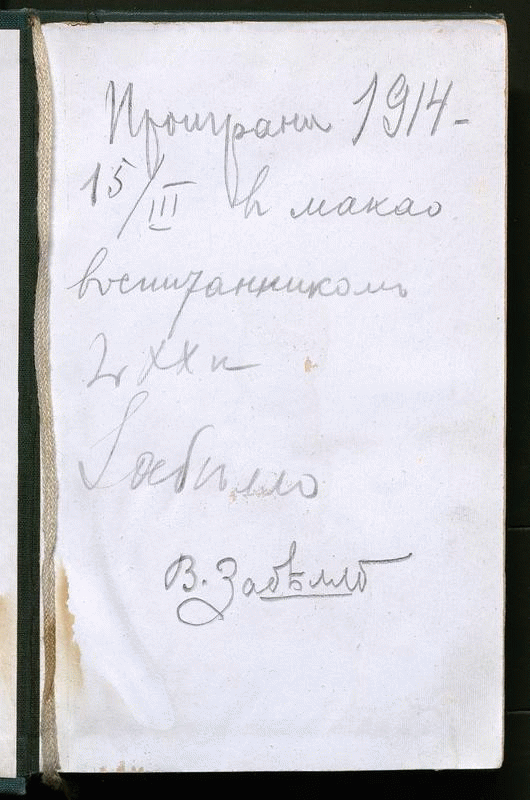 Проиграна 1914-
15/III в макао
воспитанникомъ
XX
Забѣлло
В. Забѣлло